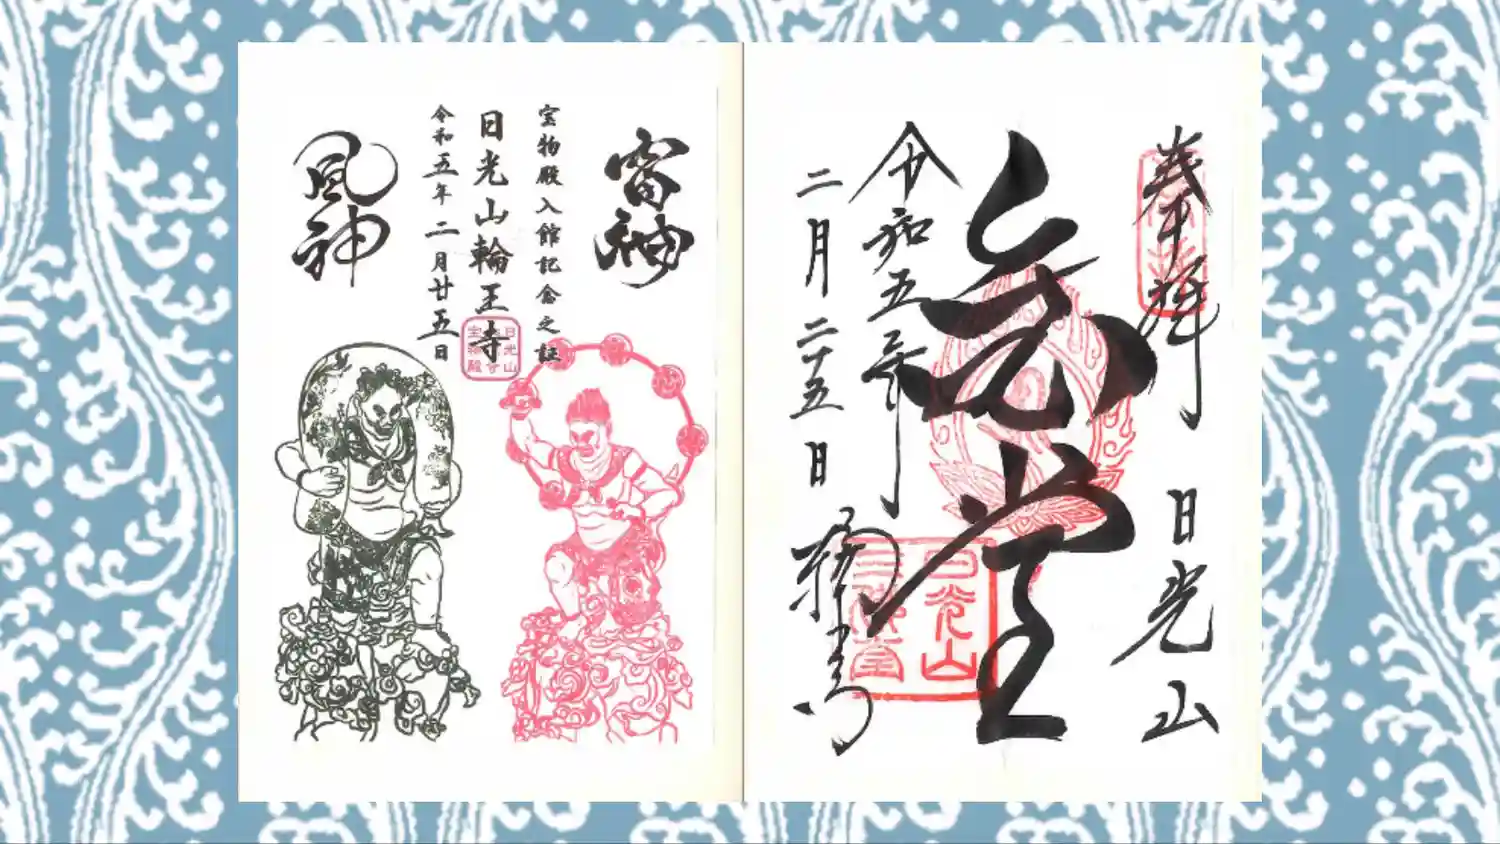 奉拝
日光山
令和五年
二月二十五日
輪王寺
日光山
三仏堂
雷神
宝物殿入館記念之証
日光山輪王寺
令和五年二月廿五日
風神
日光山
宝物殿